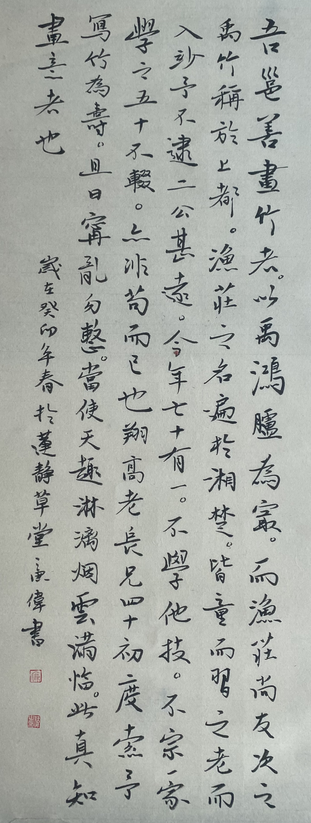 吾邑善畫竹者。以禹鴻臚為最。而漁莊尚友次之
禹竹稱於上都。漁莊之名遍於湘楚。皆童而習之老而
入妙予不逮二公甚遠。今年七十有一。不學他技。不宗一家
學之五十不輟。亦非苟而已也翔高老長兄四十初度索予
寫竹為壽。且曰寧亂勿整。當使天趣淋漓烟雲滿幅。此真知
畫意者也
歲在癸卯年春於蓮靜草堂 偉書